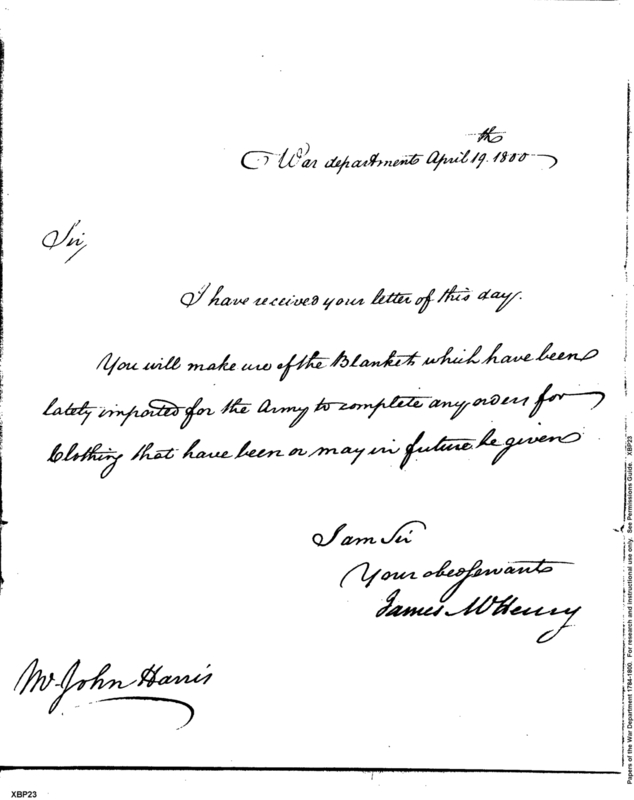 War department April 19th. 1800
Sir,
I have received your letter of this day.
You will make use of the Blankets which have been
lately imported for the Army to complete any orders for
Clothing that have been or may in future be given
I am Sir
Your obed servant
James McHenry
Mr John Harris
XBP23
Papers of the War Department 1784-1800. For research and instructional use only. See Permissions Guide. XBP23